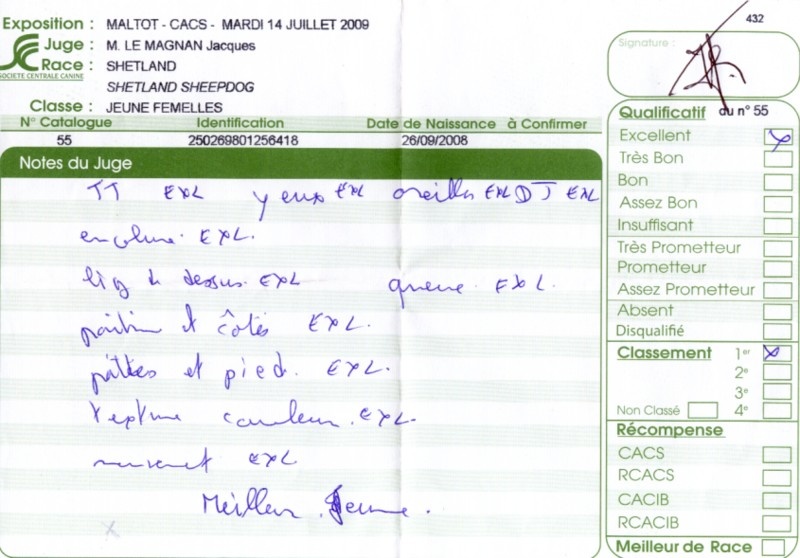 Exposition : MALTOT - CACS - MARDI 14 JUILLET 2009
Juge : M. LE MAGNAN Jacques
Race : SHETLAND
SOCIETE CENTRALE CANINE
SHETLAND SHEEPDOG
Classe : JEUNE FEMELLES
N° Catalogue Identification Date de Naissance à Confirmer
55 250269801256418 26/09/2008
Notes du Juge
TT EXL yeux EXL oreilles EXL DT EXL
encolure. EXL.
lig d dessus. EXL queue. EXL.
poitrine et côtés EXL.
pattes et pied. EXL.
texture couleur. EXL.
EXL
Meilleur Jeune.
432
Signature :
Qualificatif du n° 55
Excellent X
Très Bon
Bon
Assez Bon
Insuffisant
Très Prometteur
Prometteur
Assez Prometteur
Absent
Disqualifié
Classement 1er X
2e
3e
Non Classé 4e
Récompense
CACS
RCACS
CACIB
RCACIB
Meilleur de Race